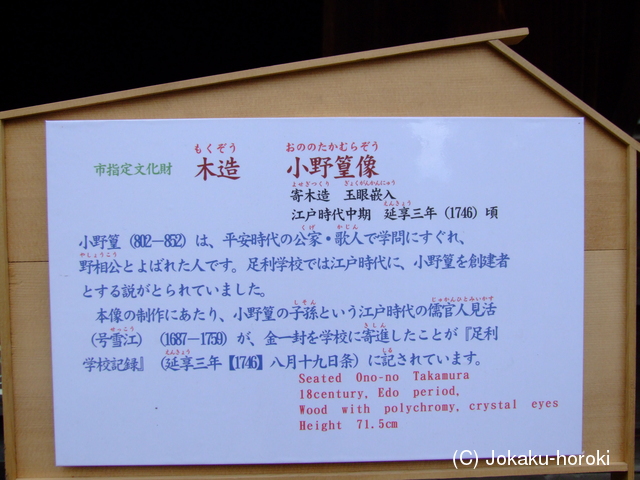 もくぞう　おののたかむらぞう
市指定文化財　木造　小野篁像
よせぎづくり　ぎょくがんかんにゅう
寄木造　玉眼嵌入
えんきょう
江戸時代中期　延享三年（1746）頃
くげ　かじん
小野篁（802－852）は、平安時代の公家・歌人で学問にすぐれ、
やしょうこう
野相公とよばれた人です。足利学校では江戸時代に、小野篁を創建者
とする説がとられていました。
しそん　じゅかんひとみいかす
本像の制作にあたり、小野篁の子孫という江戸時代の儒官人見活
せっこう　きしん
（号雪江）（1687－1759）が、金一封を学校に寄進したことが『足利
えんきょう　しる
学校記録』（延享三年【1746】八月十九日条）に記されています。
Seated Ono-no Takamura
18century, Edo period,
Wood with polychromy, crystal eyes
Height 71.5cm
(C) Jokaku-horoki